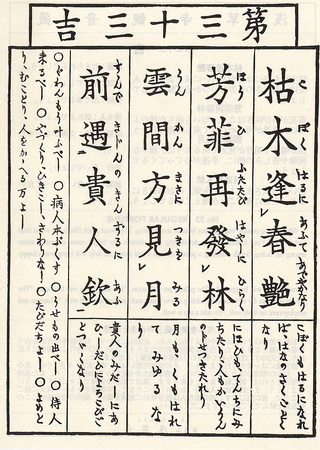 第三十三吉
枯木逢春艶
こ ぼく はるに あふて あでやかなり
こぼくもはるになれ
ば、はなのさくごとく
なり
芳菲再發林
はう ひ ふたたび はやしに ひらく
にほひも、てんちにみ
ちたり、人もかいうん
のじせつきたれり
雲間方見月
うん かん まさに つきを みる
月も、くもはれ
てみゆるな
り
前遇貴人欽
すんで きじんの きんずるに あふ
貴人のみだーにあ
ひ、しだひによろこびご
とつゞくなり
○ぐわんもう叶ふべし ○病人本ぶくす ○うせもの出べし ○待人
来るべし ○やづくり、ひきこし、さわりなし ○たびだちよし ○よめと
り、むことり、人をかゝへる万よし